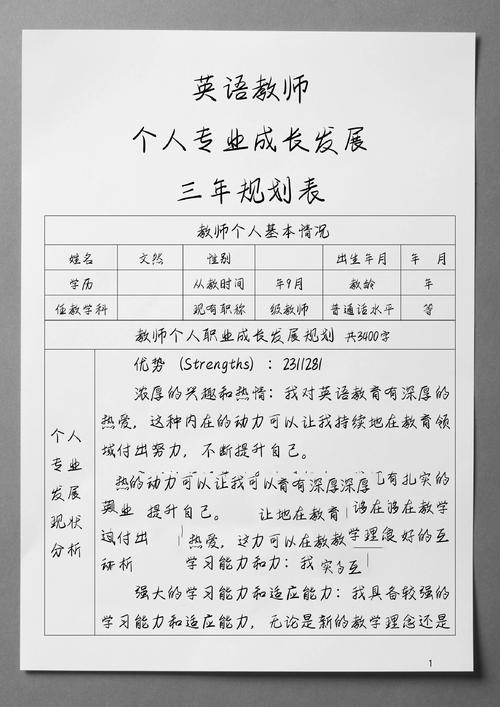 英语教师
个人专业成长发展
三年规划表
教师个人基本情况
姓名 文然 性别 出生年月 年 月
学历 从教时间 年9月 教龄 年
任教学科 现有职称 级教师 普通话水平 等
教师个人职业成长发展规划 共3400字
个人专业发展现状分析
优势 (Strengths) : 2311281
浓厚的兴趣和热情:我对英语教育有深厚的
热爱,这种内在的动力可以让我持续地在教育领
域付出努力,不断提升自己。
热的动力可以让我可以育有深厚深厚 有扎实的
业 提升自己。 让地在教育 够在够在教学
付出 热爱,这力可以在教教学理念良好的互
析 学习能力和力:我 实的互
强大的学习能力和适应能力:我具备较强的
学习能力和适应能力,无论是新的教学理念还是
1